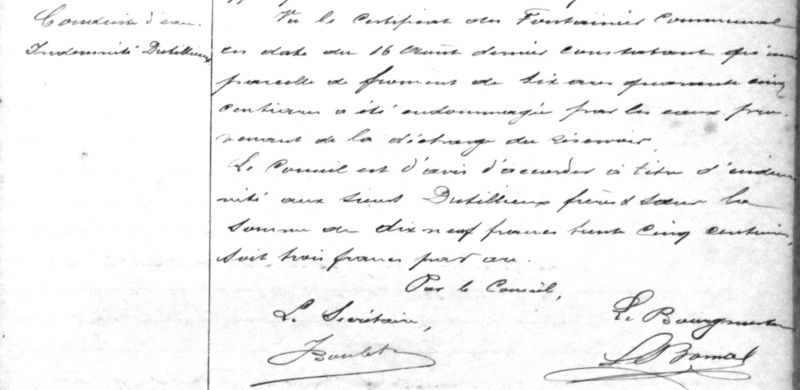 Conduite d'eau.
Indemnité Dutilleux
Vu le certificat du Fontainier Communal
en date du 16 Août dernier constatant qu'une
parcelle de froment de six ares quarante cinq
centiares a été endommagée par les eaux pro-
venant de la décharge du réservoir.
Le Conseil est d'avis d'accorder à titre d'indem
nité aux sieurs Dutillieux frères & sœur la
somme de dix neuf francs trente cinq centimes,
soit trois francs par are.
Par le Conseil,
Le Secrétaire,
Le Bourgmestre
Boulet